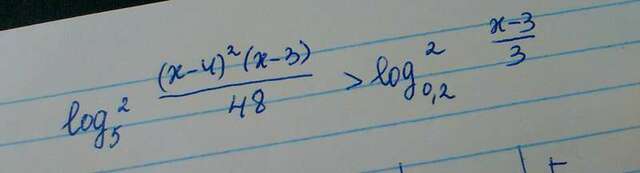 log₅² (x-4)²(x-3)/48 > log²₀,₂ (x-3)/3